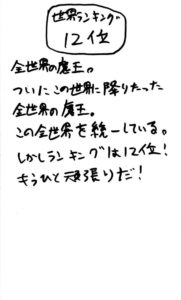 世界ランキング
12位
全世界の魔王。
ついにこの世界に降りたった
全世界の魔王。
この全世界を統一している。
しかしランキングは12位!
もうひと頑張りだ!